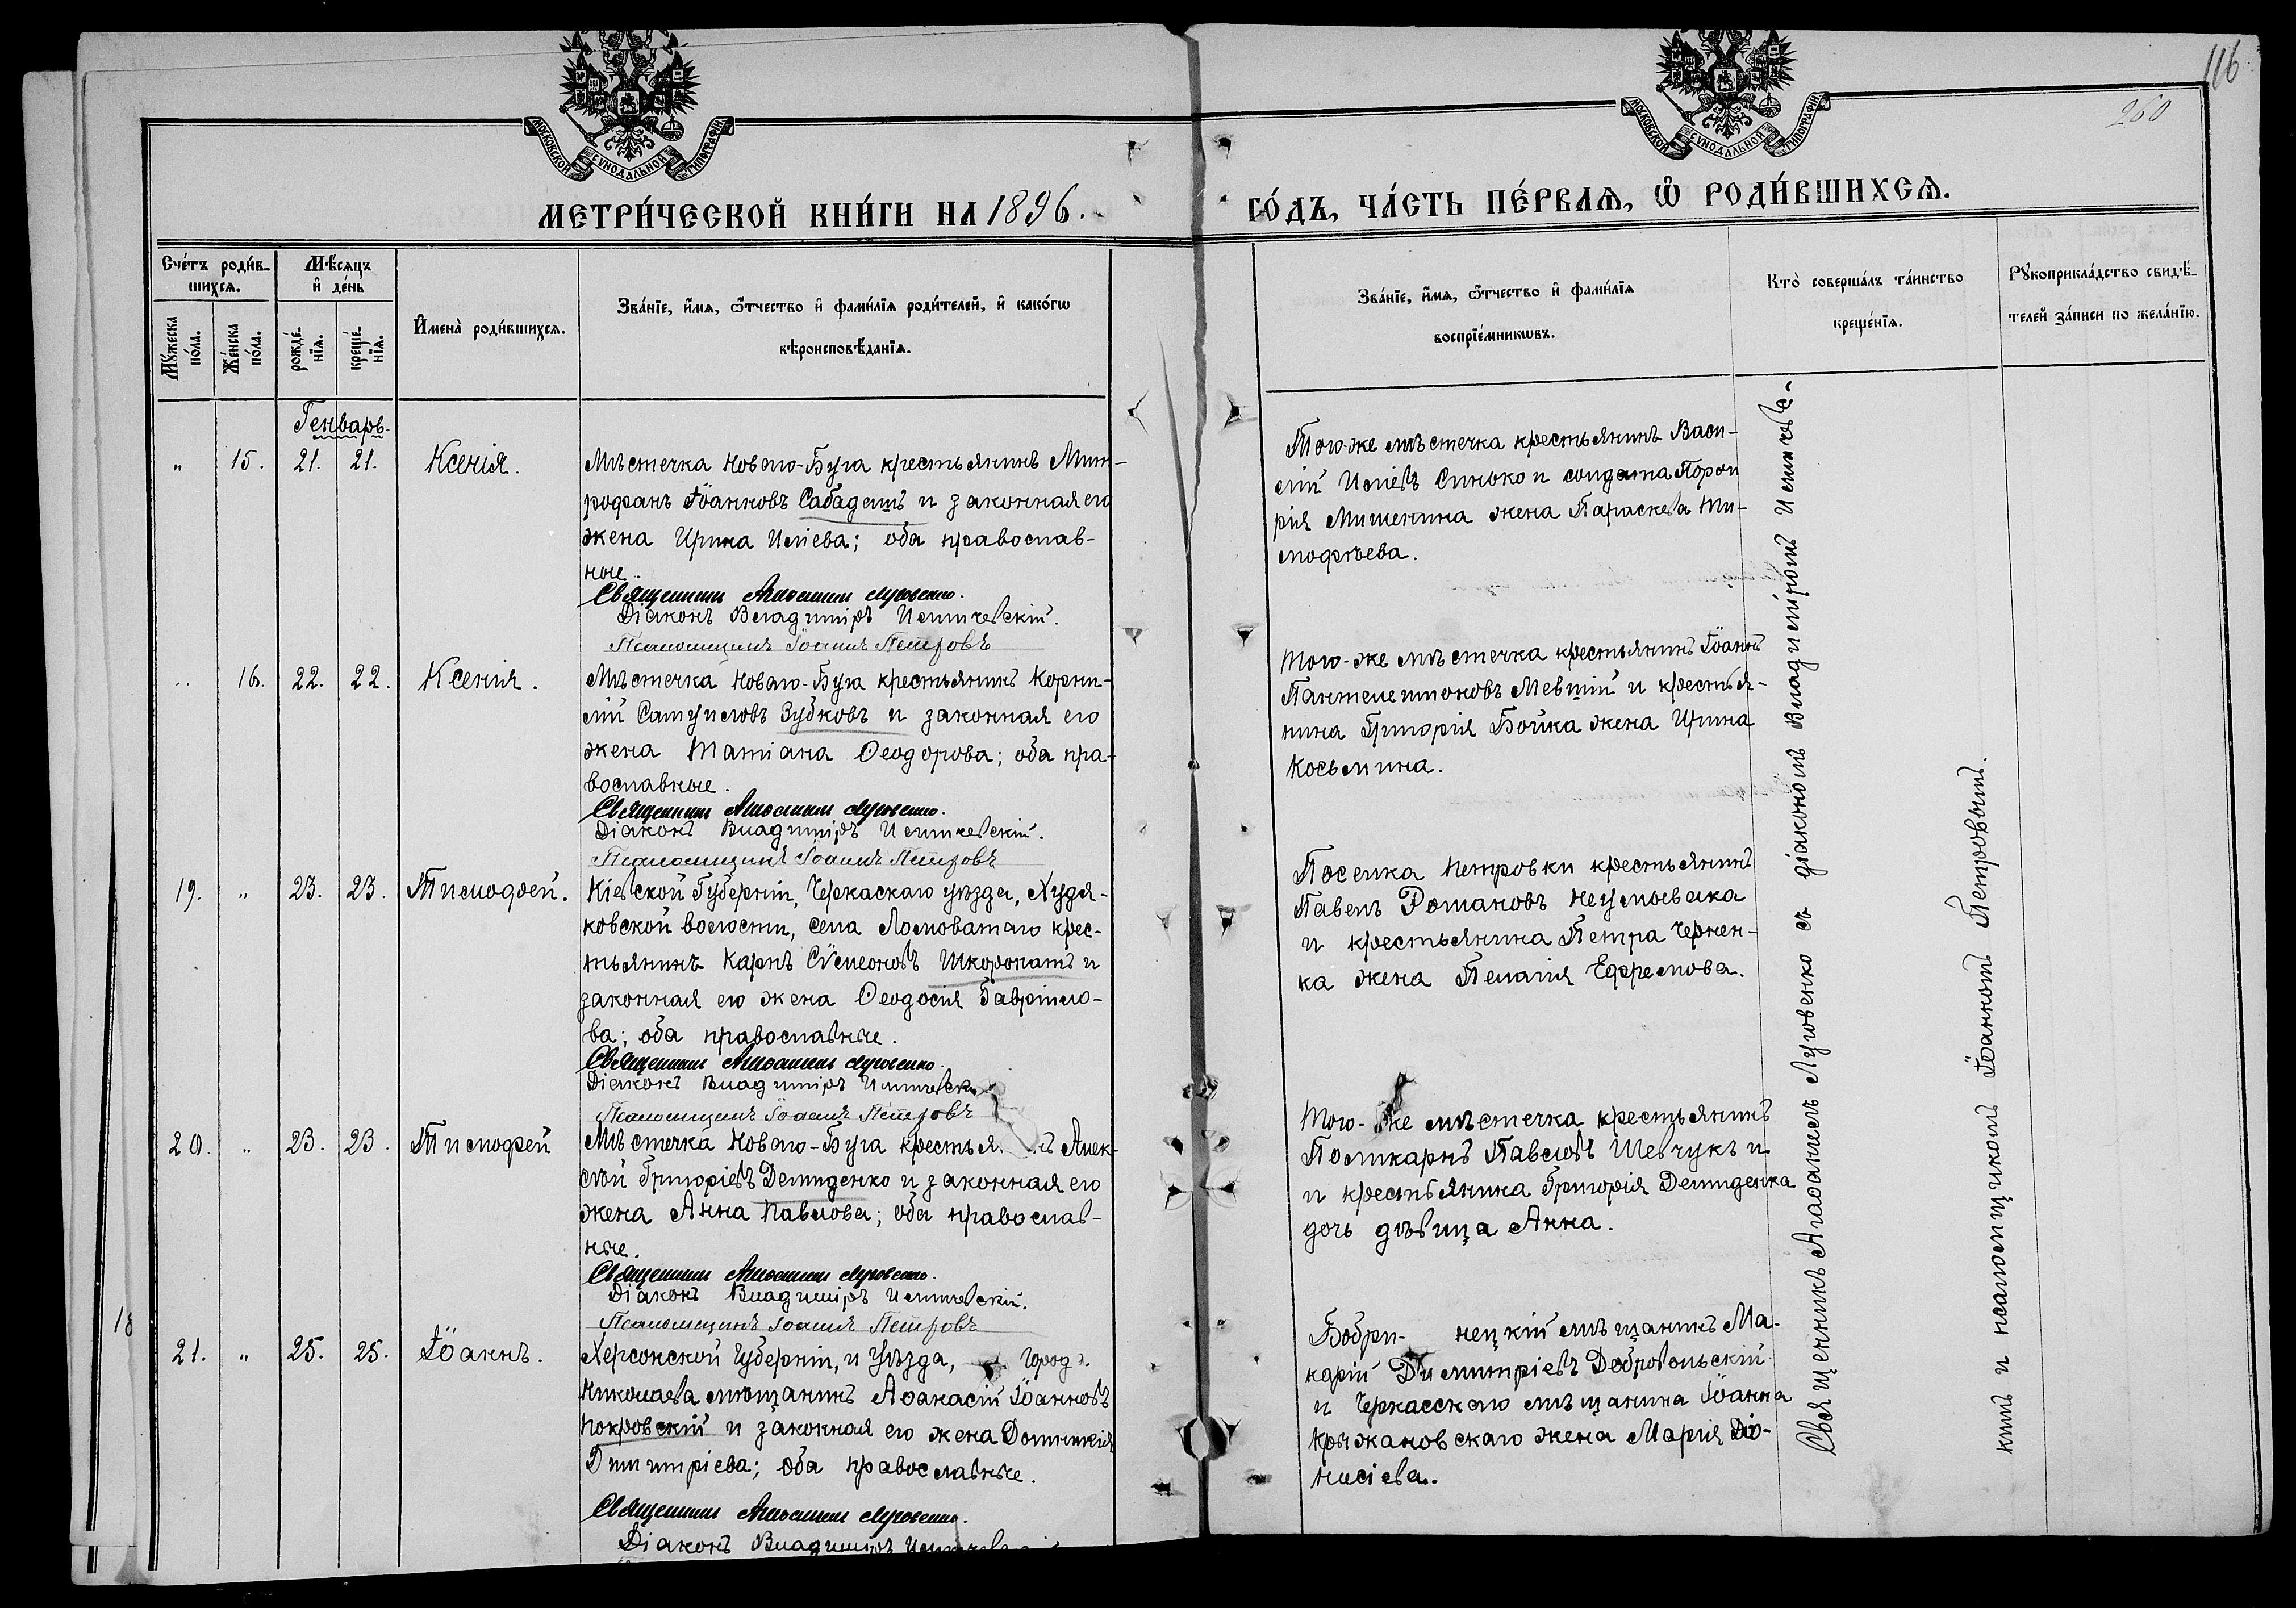 116
260
МОСКОВСКОЙ СѴНОДАЛЬНОЙ ТИПОГРАФІИ
МОСКОВСКОЙ СѴНОДАЛЬНОЙ ТИПОГРАФІИ
МЕТРИ́ЧЕСКОЙ КНИ́ГИ НА 1896.
ГО́ДЪ, ЧА́СТЬ ПЕ́РВАѦ, Ѡ҆ РОДИ́ВШИХСѦ.
Сче́тъ роди́в-
шихсѧ.
Мꙋ́жеска
по́ла.
Же́нска
по́ла.
Мѣ́сѧцъ
и҆ де́нь
рожде́-
нїѧ.
креще́-
нїѧ.
И҆мена̀ роди́вшихсѧ.
Зва́нїе, и҆́мѧ, ѻ҆́тчество и҆ фами́лїѧ роди́телей, и҆ како́гѡ
вѣроисповѣ́данїѧ.
Зва́нїе, и҆́мѧ, ѻ҆́тчество и҆ фами́лїѧ
воспрїе́мникѡвъ.
Кто̀ соверша́лъ та́инство
креще́нїѧ.
Рꙋкоприкла́дство свидѣ́-
телей за́писи по жела́нїю.
Генварь.
" 15. 21. 21. Ксенія.
Мѣстечка Новаго-Буга крестьянинъ Мит-
рофанъ Іоанновъ Сабадашъ и законная его
жена Ирина Иліева; оба православ-
ные.
Священникъ Агаѳангелъ Луговенко.
Діаконъ Владиміръ Исмичевскій.
Псаломщикъ Іоаннъ Петровъ
Того-же мѣстечка крестьянинъ Васи-
лій Иліевъ Синько и солдата Порфи
рія Мишенина жена Параскева Ти-
моѳѣева.
" 16. 22. 22. Ксенія.
Мѣстечка Новаго-Буга крестьянинъ Корни-
лій Самуиловъ Зубковъ и законная его
жена Татіана Ѳеодорова; оба пра-
вославные.
Священникъ Агаѳангелъ Луговенко.
Діаконъ Владиміръ Исмичевскій.
Псаломщикъ Іоаннъ Петровъ
Того-же мѣстечка крестьянинъ Іоаннъ
Пантелеимоновъ Мевшій и крестья-
нина Григорія Бойка жена Ирина
Косьмина.
19. " 23. 23. Тимоѳей.
Кіевской Губерніи, Черкаскаго уѣзда, Худя-
ковской волости, села Ломоватаго крес-
тьянинъ Карпъ Сѵмеоновъ Шкоропатъ и
законная его жена Ѳеодосія Гавріило-
ва; оба православные.
Священникъ Агаѳангелъ Луговенко.
Діаконъ Владиміръ Исмичевск
Псаломщикъ Іоаннъ Петровъ
Поселка Петровки крестьянинъ
Павелъ Романовъ Неумывака
и крестьянина Петра Чернен-
ка жена Пелагія Ефремова.
20. " 23. 23. Тимофей
Мѣстечка Новаго-Буга крестья нъ Алек-
сѣй Григоріевъ Демиденко и законная его
жена Анна Павлова; оба православ-
ные.
Священникъ Агаѳангелъ Луговенко.
Діаконъ Владиміръ Исмичевскій.
Псаломщикъ Іоаннъ Петровъ
Того-же мѣстечка крестьянинъ
Поликарпъ Павловъ Шевчукъ и
и крестьянина Григорія Демиденка
дочь дѣвица Анна.
18
21. " 25. 25. Іоаннъ.
Херсонской Губерніи, и Уѣзда, города
Николаева мѣщанинъ Аѳанасій Іоанновъ
Покровскій и законная его жена Домникія
Димитріева; оба православные.
Священникъ Агаѳангелъ Луговенко.
Діаконъ Владиміръ
Бобри- нецкій мѣщанинъ Ма-
карій Димитріевъ Добровольскій
и Черкасскаго мѣщанина Іоанна
Крыжановскаго жена Марія Діо-
нисіева.
Священникъ Агаѳангелъ Луговенко съ діакономъ Владиміромъ Исмичевс-
кимъ и псаломщикомъ Іоанномъ Петровымъ.